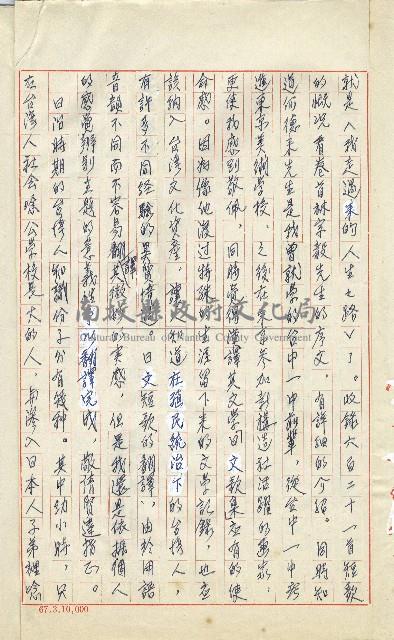 就是入我走過來的人生七路〉了。收錄六百二十一首短歌
的概況有卷首林宗毅先生的序文，有詳細的介紹。同時知
道何德來先生是我曾就學的台中一中前輩，從台中一中考
進東京美術學校，之後在東京參加新構造社活躍的畫家，
更使我感到敬佩，同時覺得譯英文學回文歌集應有的使
命感。因為像他渡過特殊的生涯留下來的文學記錄，也應
該納入台灣文化資產，讓知道在殖民統治下的台灣人，
有許多不同經驗的異質情況。日文短歌的翻譯，由於用語
音韻不同而不容易翻譯的美感，但是我還是依據個人
的感覺辦別主題的意義翻譯完成，敬請賢達指正。
日治時期的台灣人知識份子分有幾種。其中幼小時，只
在台灣人社會唸公學校長大的人，與滲入日本人子弟裡唸
南投縣政府文化局
Cultural Bureau of Nantou County Government
67.3.10,000